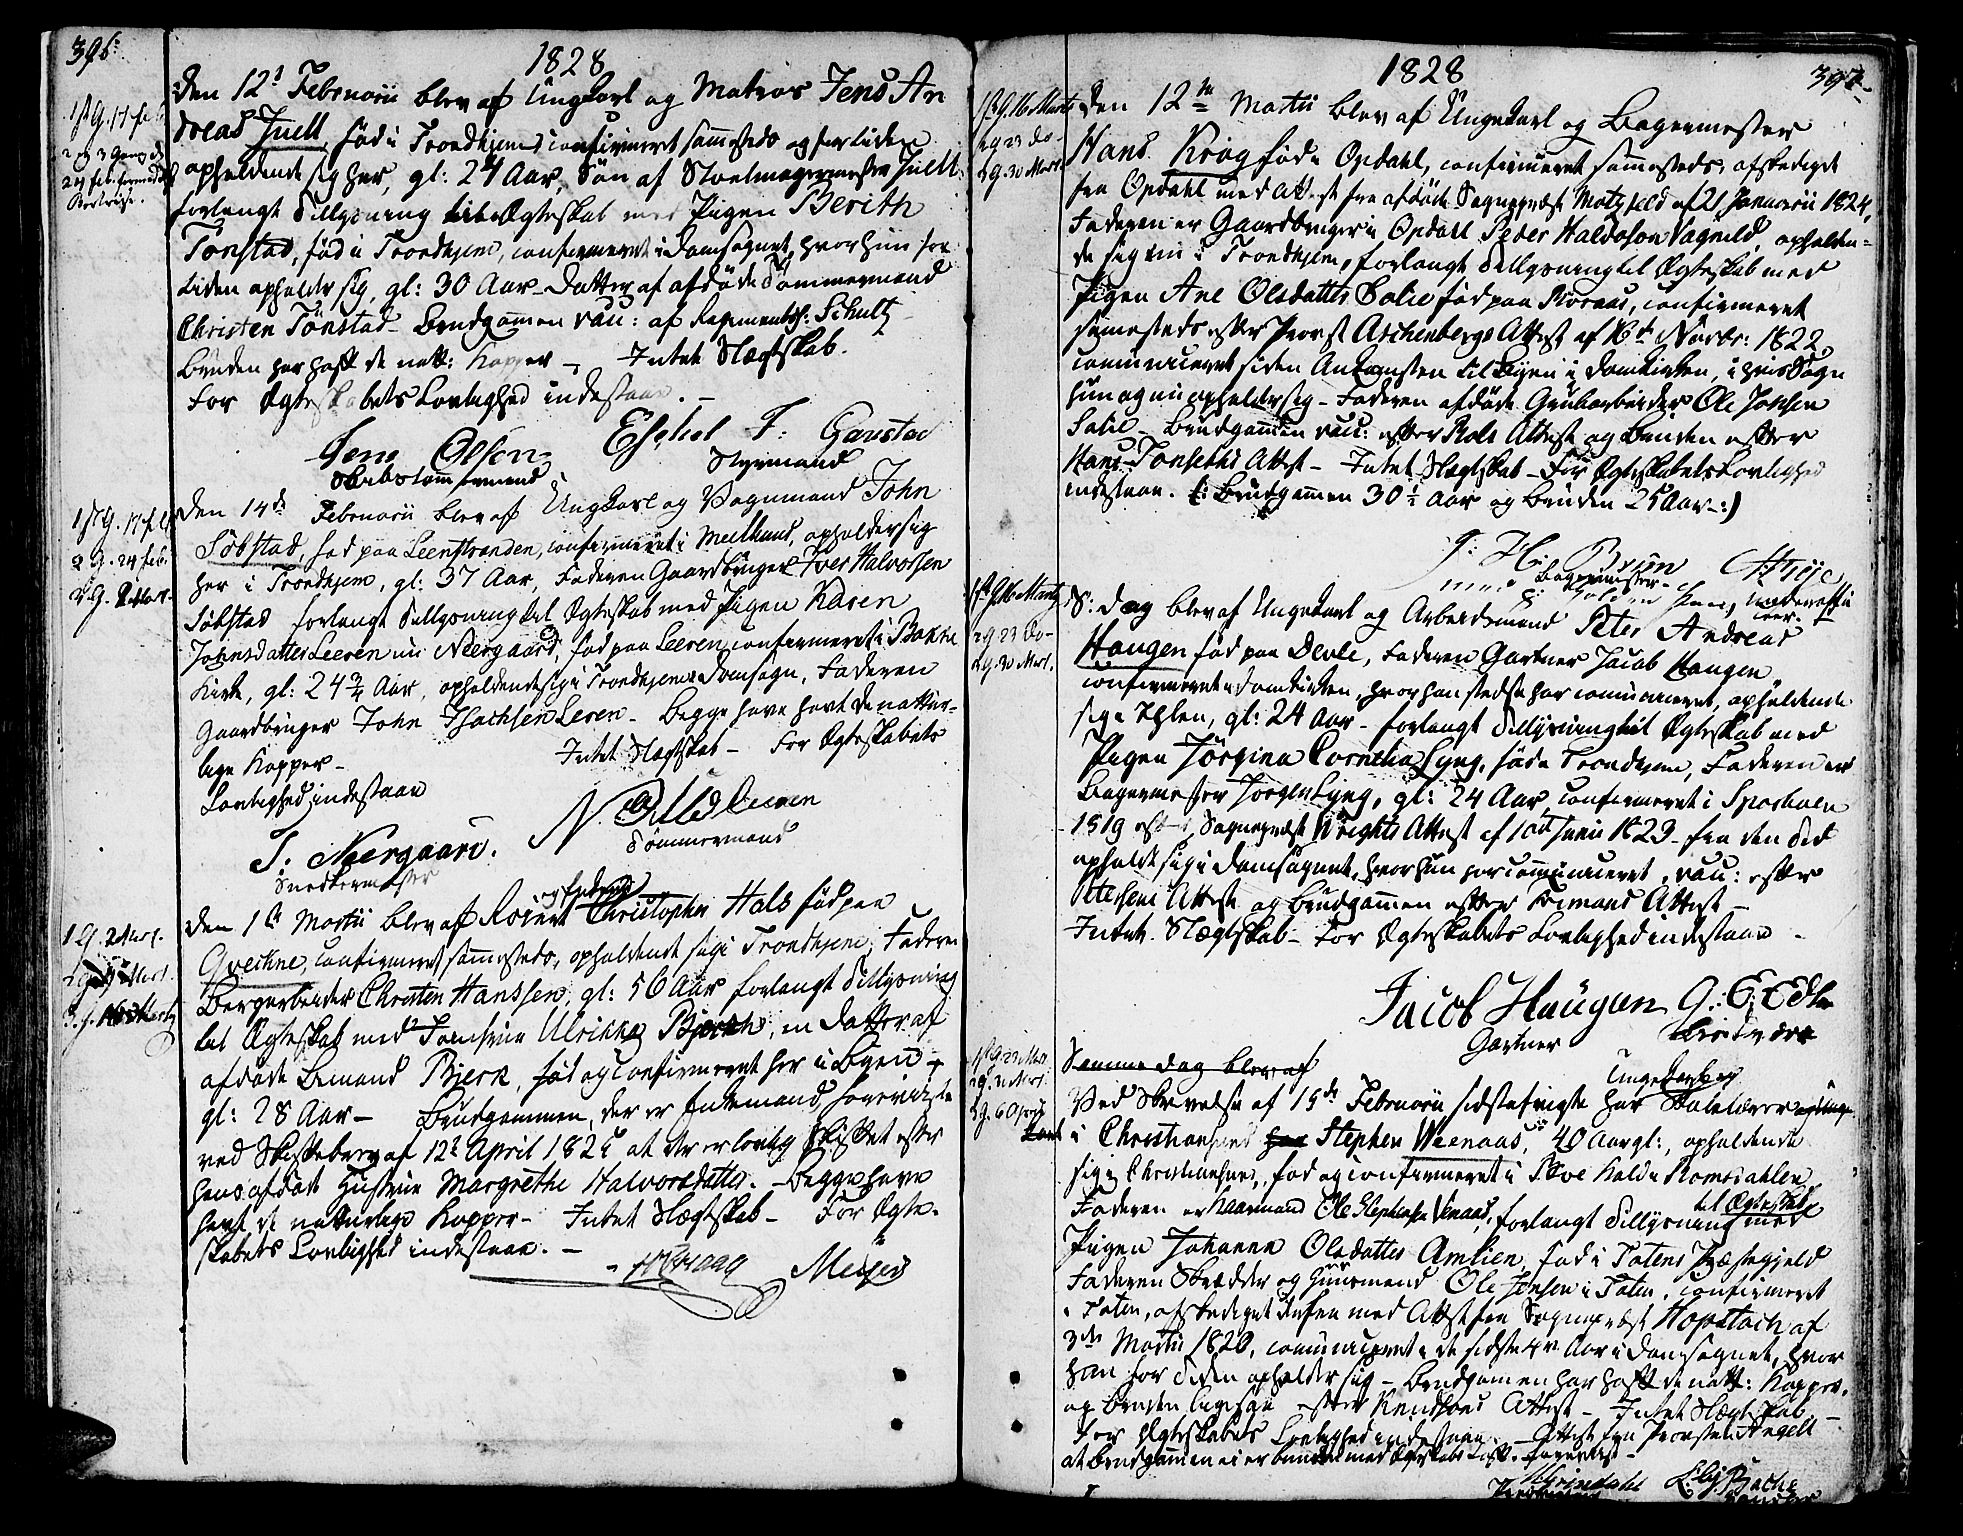 396.
1828
1ste G. 17 feb.
2 og 3 Gang d.
24 feb.
Den 12te Februarii blev af Ungkarl og Matros Jens An
dreas Juell, født i Trondhjem, confirmeret sammesteds og for tiden
opholdende sig her, gl: 24 Aar, Søn af Stoelmagermester Juell,
forlangt Tillysning til Ægteskab med Pigen Berith
Tønstad, født i Trondhjem, confirmeret i Domsognet, hvor hun for
tiden opholder sig, gl: 30 Aar – Datter af afdøde Tømmermand
Christen Tönstad – Brudgommen vacc: af Regimentsch: Schultz –
Bruden har haft de natt: Kopper – Intet Slægtskab.
For Ægteskabets Lovlighed indestaae. –
Jens Olsen
Skibstømmermand
T: Garstad
Styrmand
1ste G. 17 feb.
2 G. 24 feb.
3 G.
Den 14de Februarii blev af Ungkarl og Vognmand John
Söbstad, født paa Leenstranden, confirmeret i Meelhuus, opholder sig
her i Trondhjem, gl: 37 Aar, Faderen Gaardbruger Iver Halvorsen
Söbstad forlangt Tillysning til Ægteskab med Pigen Karen
Johnsdatter Leeren nu Neergaard, født paa Leeren, confirmeret i Bakke
Kirke, gl: 24 3/4 Aar, opholdende sig i Trondhjems Domsogn, Faderen
Gaardbruger John Isachsen Leren – Begge have havt de nattur-
lige Kopper – Intet Slægtskab – For Ægteskabets
Lovlighed indestaae
J. Neergaard.
Snedkermester
Leeren
Tømmermand
1 G. 2 Mart.
2 G. 9 Mart.
3 G. 16 Marty
og Enkemand
Den 1ste Martii blev af Rojert Christopher Hals født paa
Qvechne, confirmeret sammesteds, opholdende sig i Trondhjem, Faderen
Bergarbeider Christen Hanssen, gl: 56 Aar forlangt Tillysning
til Ægteskab med Jomfrue Ulrikka Bjerch, en Datter af
afdøde Bmand Bjerk, født og confirmeret her i Byen –
gl: 28 Aar – Brudgommen, der er Enkemand, foreviiste
ved Skiftebrev af 12te April 1825 at der er lovlig skiftet efter
hans afdøde Hustrue Margrethe Halvorsdatter. – Begge have
havt de naturlige Kopper – Intet Slægtskab – For Ægte-
skabets Lovlighed indestaae. –
Meyer
397.
1828
1ste G. 16 Marts
2 G. 23 do –
3 G. 30 Mart.
Den 12te Martii blev af Ungkarl og Bagermester
Hans Krog født i Opdahl, confirmeret sammesteds, afskediget
fra Opdahl med Attest fra afdøde Sognepræst Motzfeld af 21 Januarii 1824,
Faderen er Gaardbruger i Opdael Peder Haldosøn Vagnild, opholden-
de sig nu i Trondhjem, forlangt Tillysning til Ægteskab med
Pigen Ane Olsdatter Salie født paa Röraas, confirmeret
sammesteds efter Provst Aschenbergs Attest af 16de Novbr: 1822,
communiceret siden Ankomsten til Byen i Domkirken, i hvis Sogn
hun og nu opholder sig – Faderen afdøde Grubearbeider Ole Jonsen
Salie – Brudgommen vacc: efter Attest og Bruden efter
Hans Tonseths Attest – Intet Slægtskab – For Ægteskabets Lovlighed
indestaae. (: Brudgommen 30 1/2 Aar og Bruden 25 Aar –:)
Bagermester
1ste G. 16 Marty
2 G. 23 do –
3 G. 30 Mart.
S: Dag blev af Ungkarl og Arbeidsmand Peter Andreas
Haugen født paa Devle, Faderen Gartner Jacob Haugen,
confirmeret i Domkirken, hvor han stedse har communiceret, opholdende
sig i Ihlen, gl: 24 Aar – forlangt Tillysning til Ægteskab med
Pigen Jörgina Cornelia Lyng, født i Trondhjem, Faderen er
Bagermester Jörgen Lyng, gl: 24 Aar, confirmeret i Sparboen
1819 efter Sognepræst Wrights Attest af 10de Junii 1823 – fra den Tid
opholdt sig i Domsognet, hvor hun har communiceret, vacc: efter
Attest og Brudgommen efter Attest –
Intet Slægtskab – For Ægteskabets Lovlighed indestaae –
Jacob Haugen
Gartner
1ste G. 23 Mart.
2 G.
3 G. 6 April
Samme Dag blev af
Ungekarl og
Ved Skrivelse af 15de Februarii sidstafvigte har Skolelærer
i Christiansund Stephen Weenaas, 40 Aar gl:, opholdende
sig i Christiansund, født og confirmeret i Romsdahlen
Faderen er Ole Stephensen Venaas, forlangt Tillysning til Ægteskab med
Pigen Johanna Olsdatter Amlien, født i Totens Præstegjeld
Faderen Skrædder og Huusmand Ole Jensen i Toten, confirmeret
i Toten, afskediget derfra med Attest fra Sognepræst Hopstoch af
3de Martii 1820, communiceret i de sidste 4re Aar i Domsognet, hvor
hun for Tiden opholder sig – Brudgommen har haft de natt: Kopper,
og Bruden ligesaa efter Attest – Intet Slægtskab –
For Ægteskabets Lovlighed indestaae – Attest fra Provsten Angell
at Brudgommen ei er bunden med Ægteskabs Løfte foreviist –
Grindahl
Bache